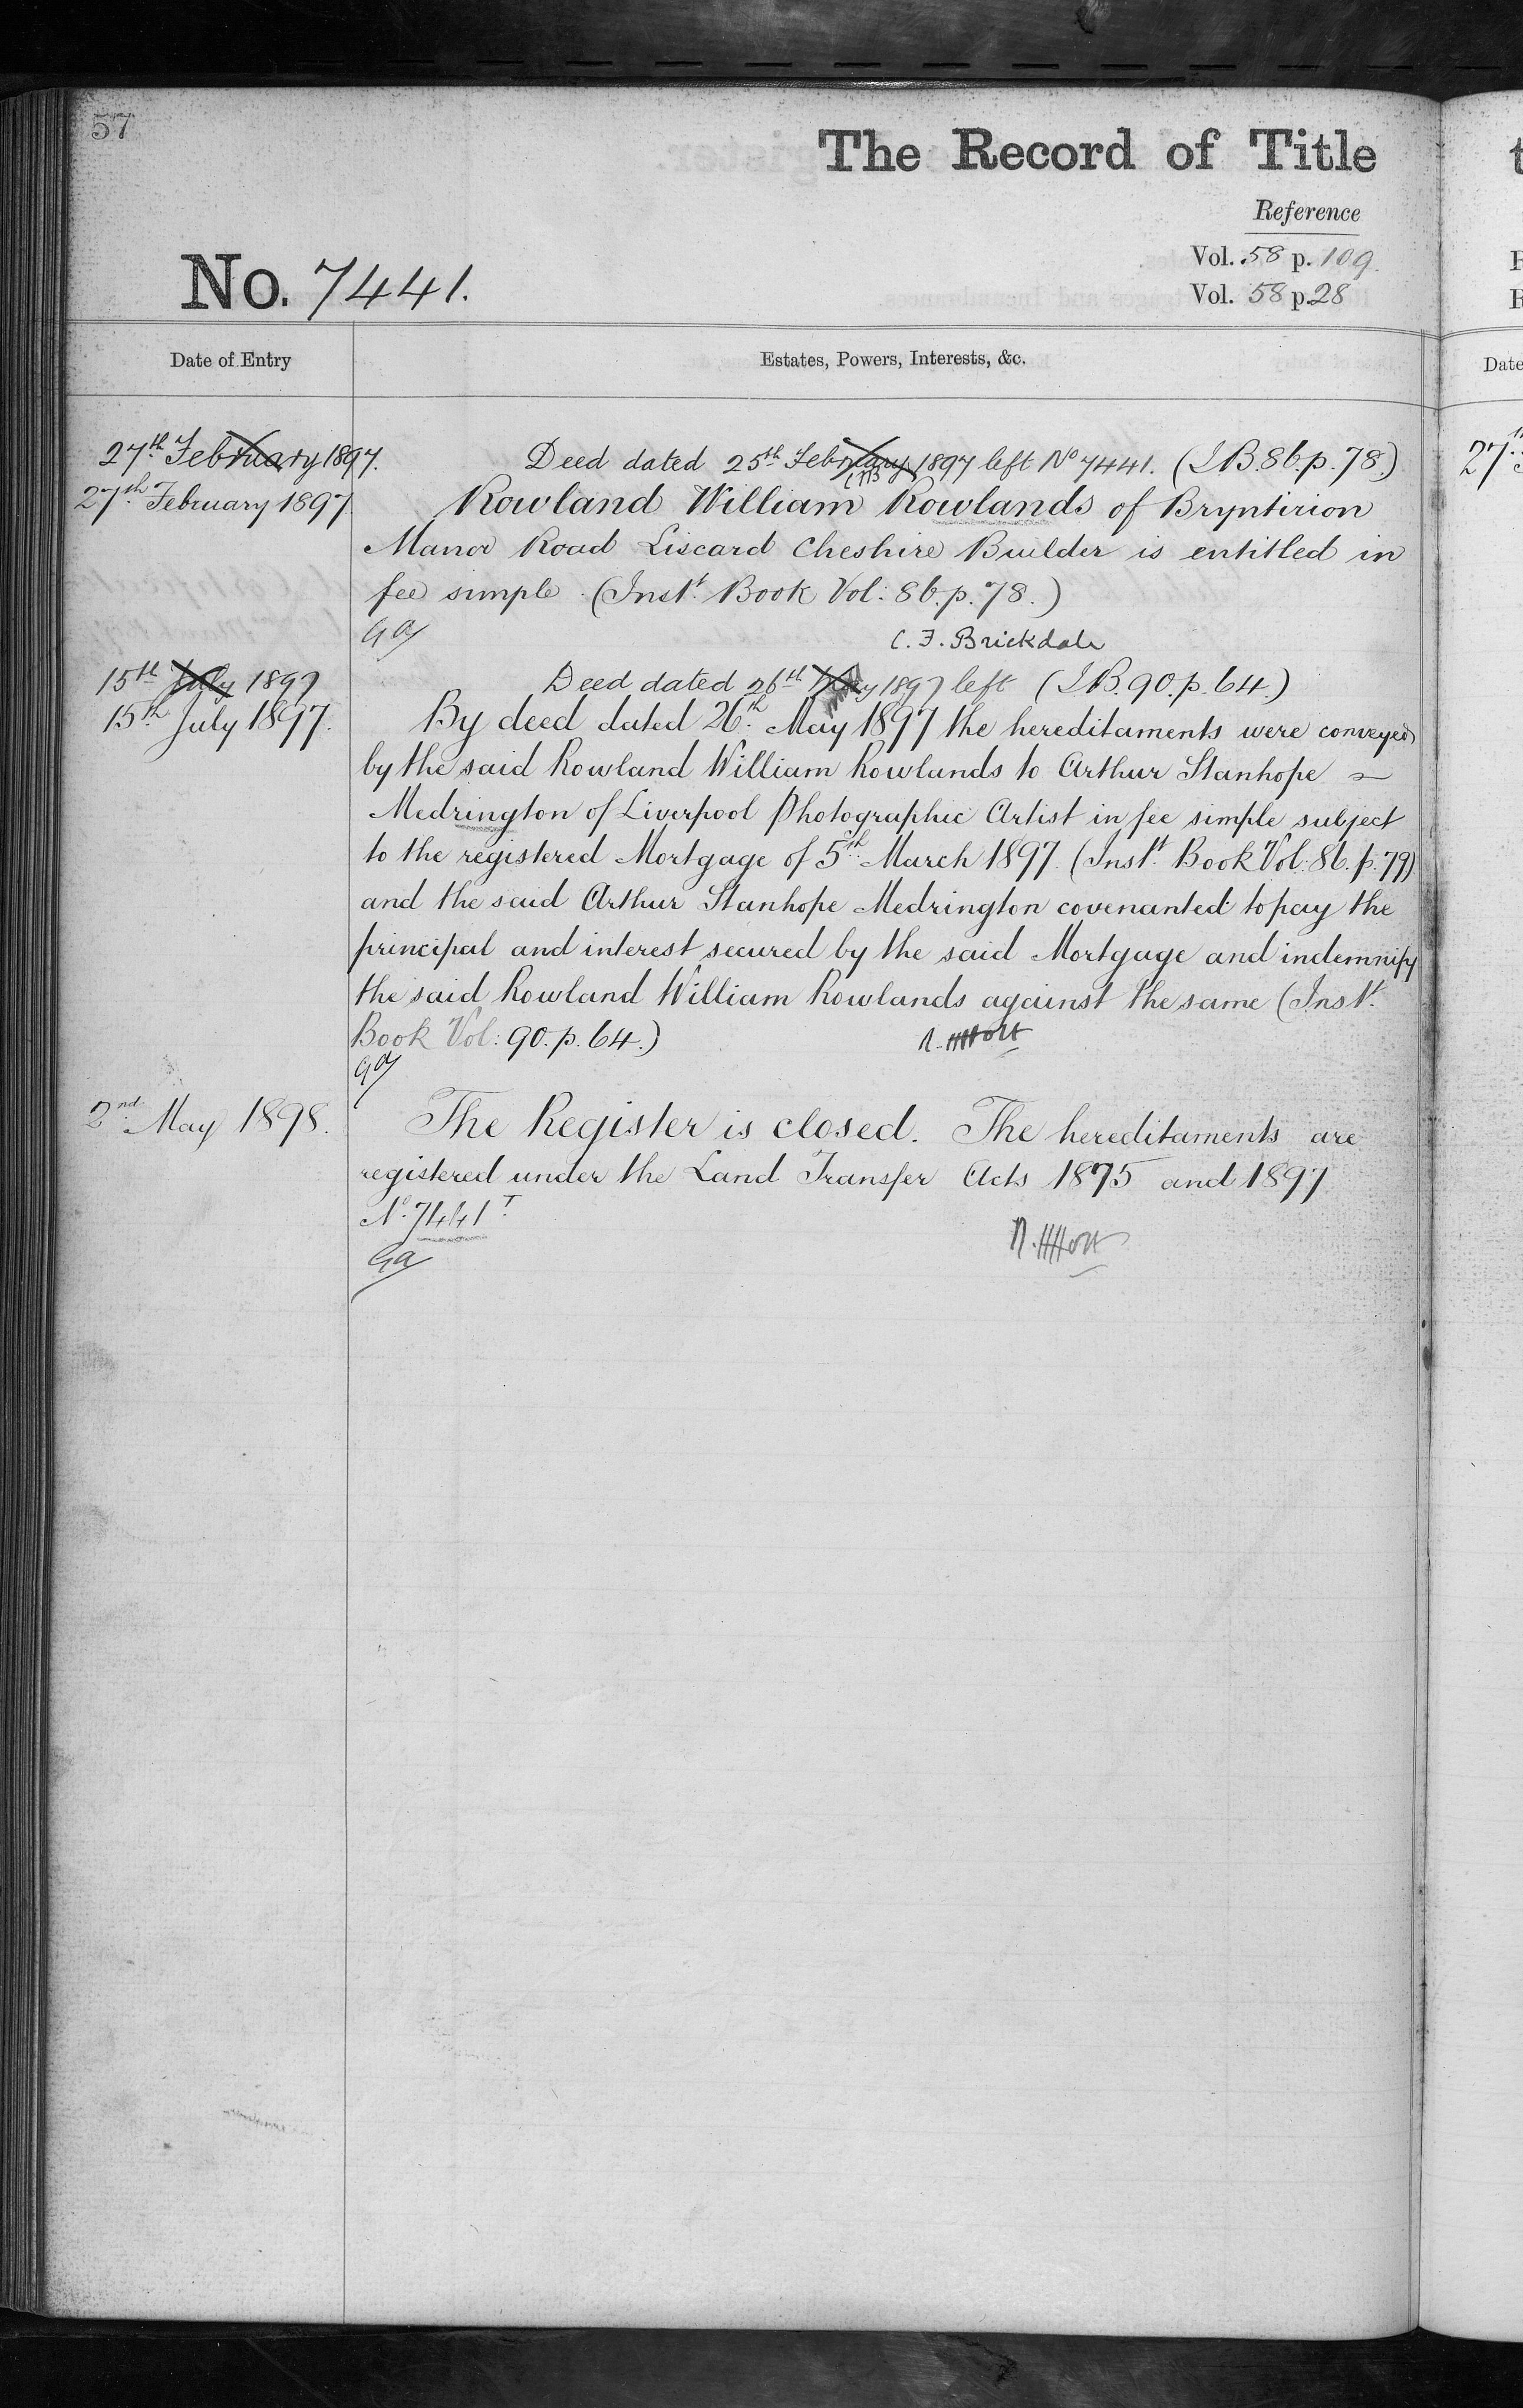 57
The Record of Title
Reference
Vol. 58 p. 109.
No. 7441.
Vol. 58 p. 28
Date of Entry
Estates, Powers, Interests, &c.
Date
27th February 1897. Deed dated 25th February 1897 left No 7441. (I.B. 86. p. 78.)
27th February 1897 Rowland William Rowlands of Bryntirion
27th
Manor Road Liscard Cheshire Builder is entitled in
fee simple. (Inst. Book Vol: 86. p. 78.)
C. F. Brickdale
15th July 1897 Deed dated 26th May 1897 left (I.B. 90. p. 64.)
15th July 1897. By deed dated 26th May 1897 the hereditaments were conveyed
by the said Rowland William Rowlands to Arthur Stanhope
Medrington of Liverpool Photographic Artist in fee simple subject
to the registered Mortgage of 5th March 1897. (Inst. Book Vol: 86. p. 79)
and the said Arthur Stanhope Medrington covenanted to pay the
principal and interest secured by the said Mortgage and indemnify
the said Rowland William Rowlands against the same (Inst.
Book Vol: 90. p. 64.)
2nd May 1898. The Register is closed. The hereditaments are
registered under the Land Transfer Acts 1875 and 1897
No. 7441 T.